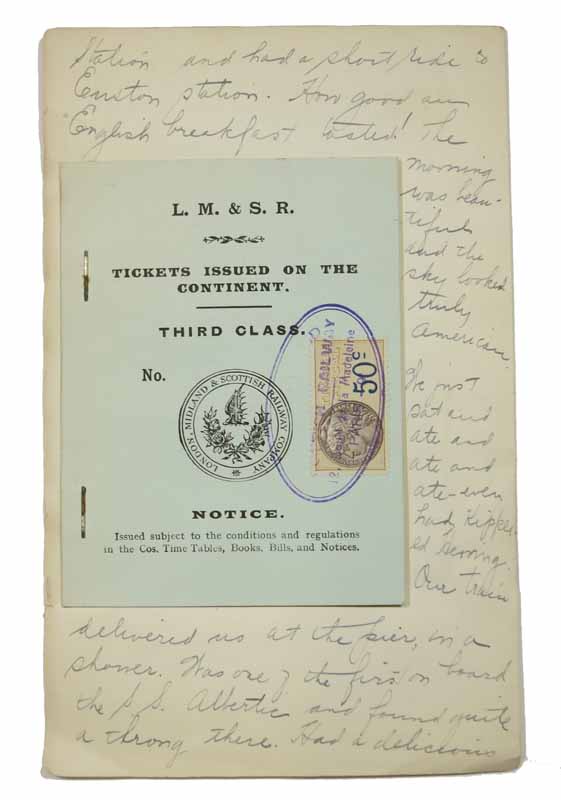 Station and had a short ride to
Euston station. How good an
English breakfast tasted! The
morning
was beau-
tiful
and the
sky looked
truly
American.
We just
sat and
ate and
ate and
ate - even
had Kipper-
ed
Our train
delivered us at the pier, in a
shower. Was one of the first on board
the S.S. Albertic and found quite
a throng there. Had a delicious
L. M. & S. R.
TICKETS ISSUED ON THE
CONTINENT.
THIRD CLASS.
No.
LONDON, MIDLAND & SCOTTISH RAILWAY COMPANY
50c
la Madeleine
PARIS
NOTICE.
Issued subject to the conditions and regulations
in the Cos. Time Tables, Books, Bills, and Notices.